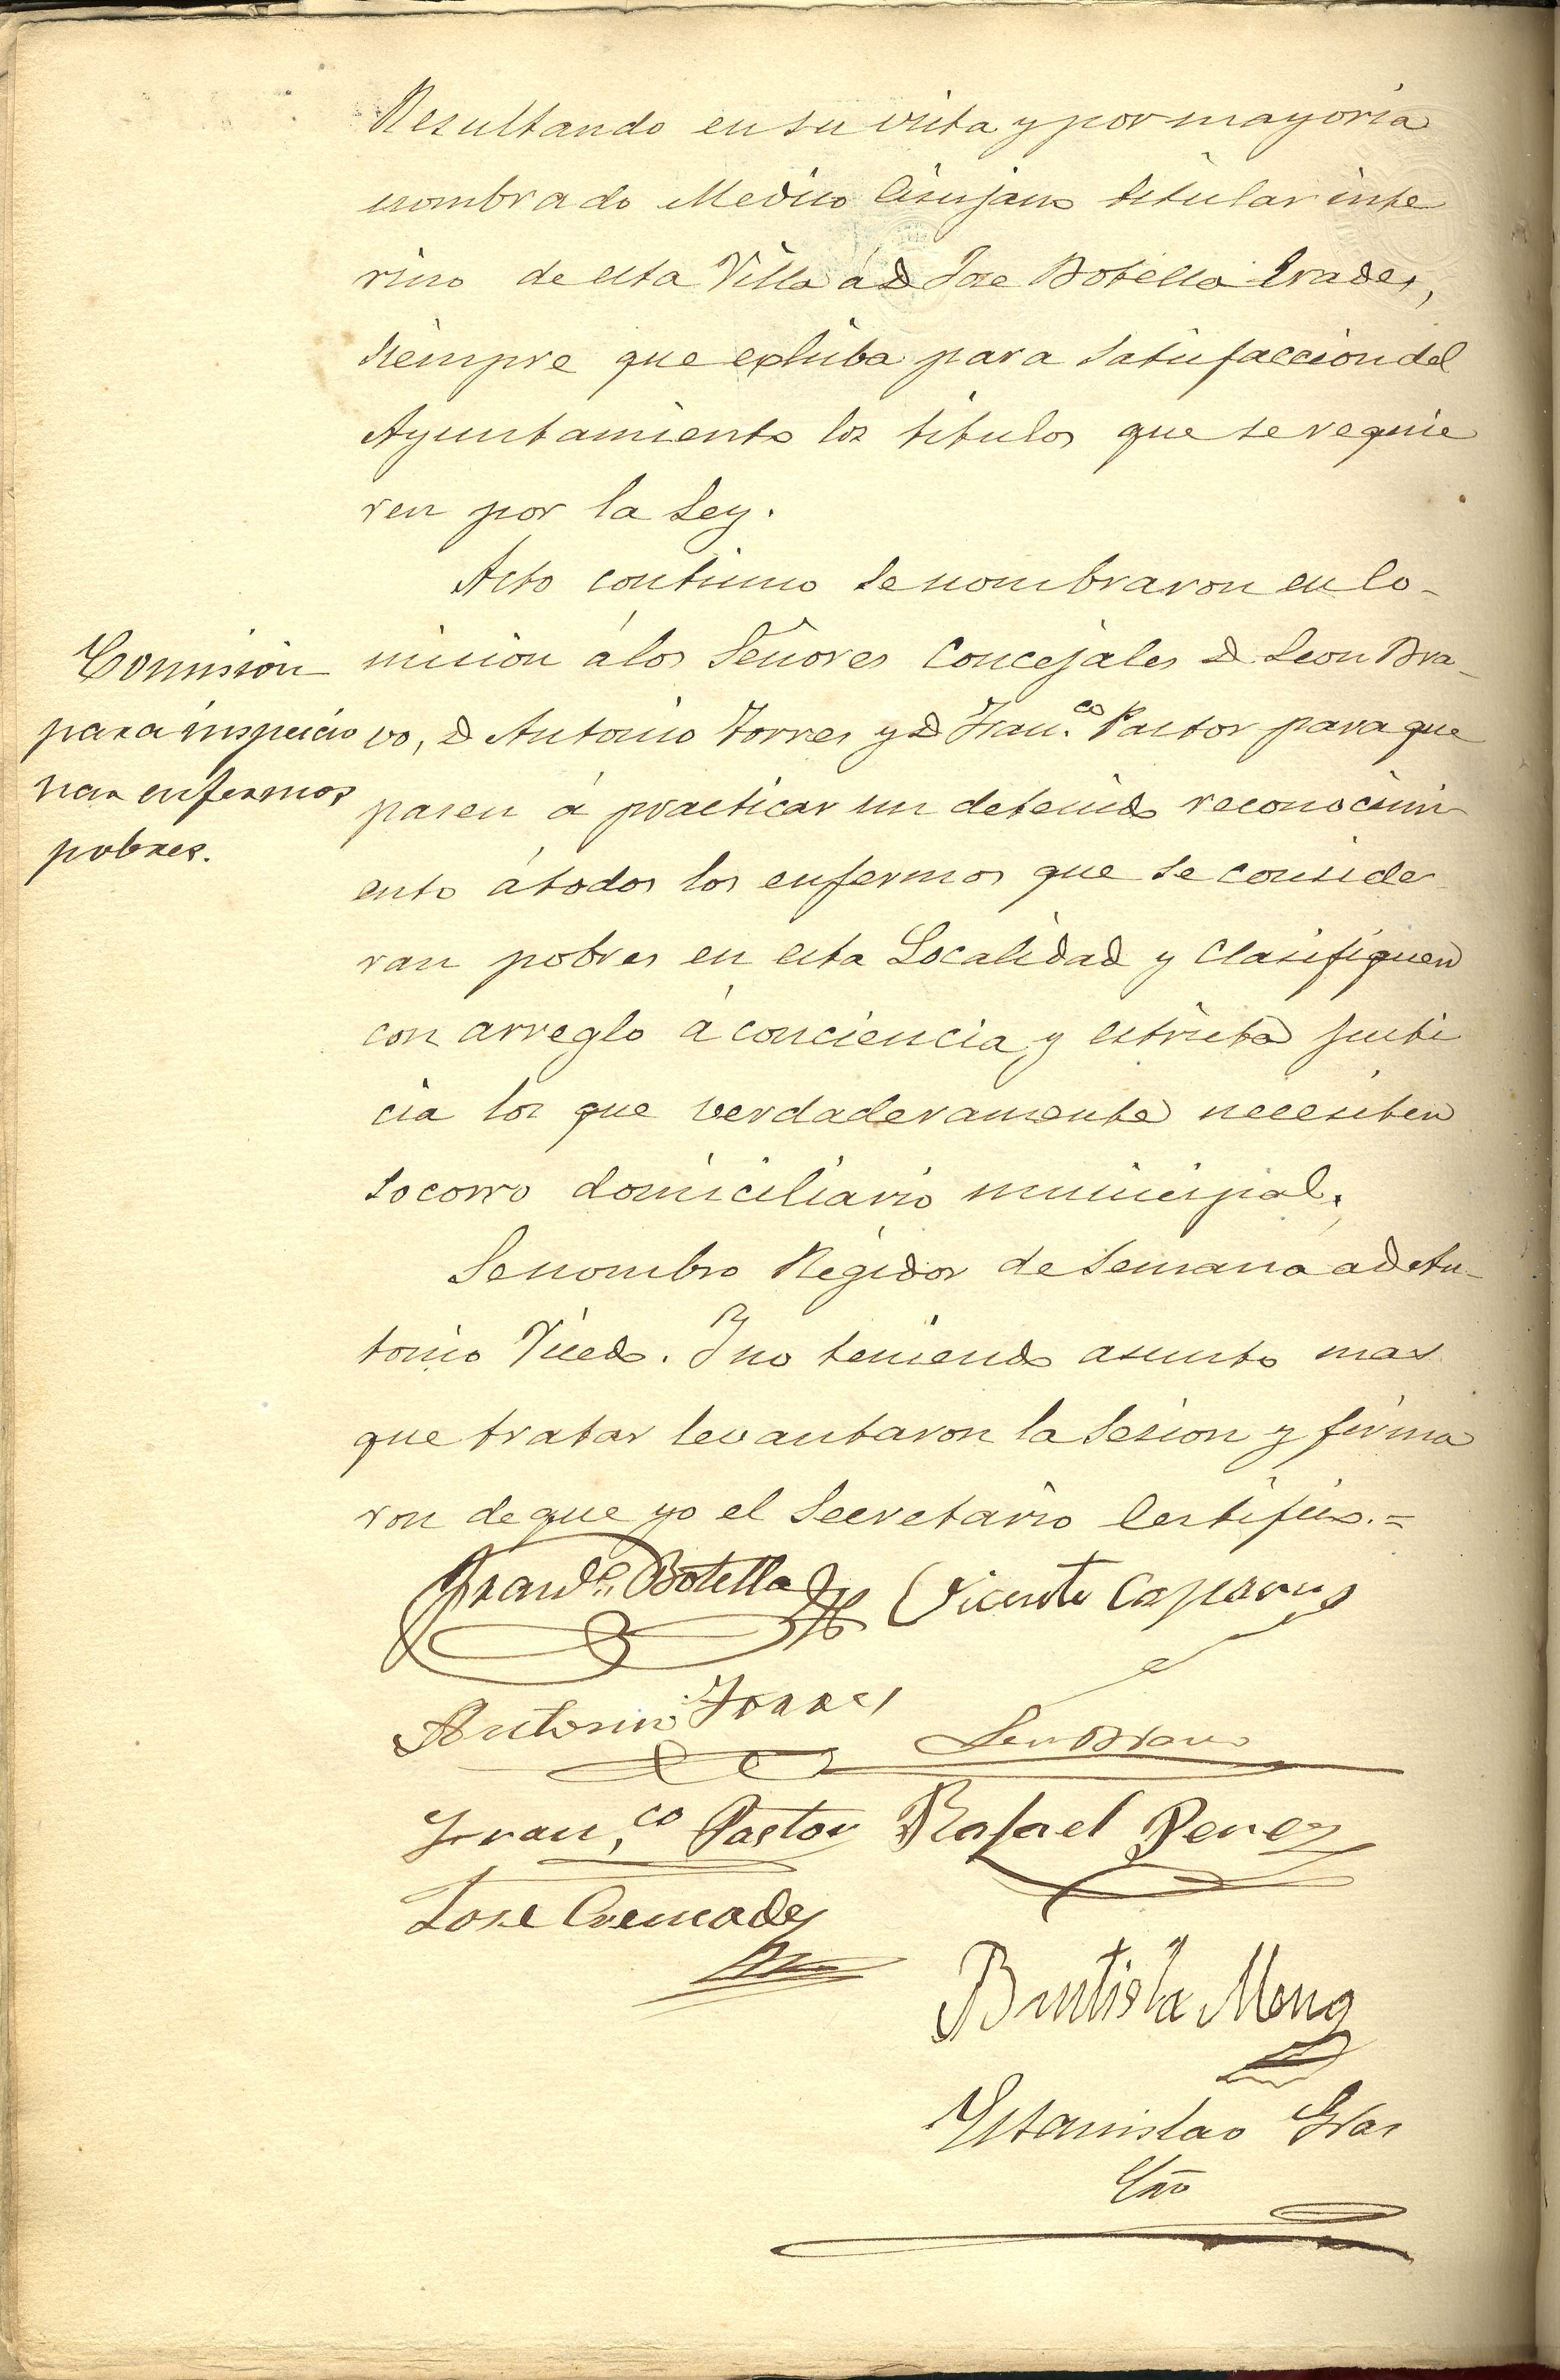 Resultando en su vista y por mayoria
nombrado Medico Cirujano titular inte
rino de esta Villa á D Jose Botella Prades,
siempre que exhiba para satisfaccion del
Ayuntamiento los titulos que se requie
ren por la Ley.
Acto continuo se nombraron en Co-
mision á los Señores Concejales D Leon Bra-
vo, D Antonio Torres y D Fran.co Pastor para que
pasen á practicar un detenido reconocimi
ento á todos los enfermos que se conside
ran pobres en esta Localidad y clasifiquen
con arreglo á conciencia y estricta justi
cia los que verdaderamente necesiten
socorro domiciliario municipal.
Comision
para inspeccio
nar enfermos
pobres.
Se nombro Regidor de semana a D An-
tonio Picedo. Y no teniendo asunto mas
que tratar levantaron la sesion y firma
ron de que yo el Secretario Certifico.=
Botella Vicente Caparros
Antonio Torres Leon Bravo
Fran.co Pastor Rafael Perez
Jose Cremades
Bautista
Estanislao
Srio